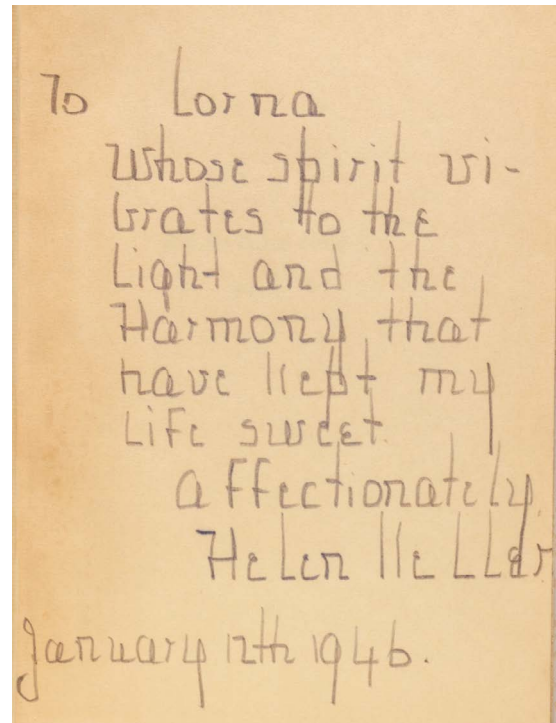 To Lorna
whose spirit vi-
brates to the
Light and the
Harmony that
have kept my
Life sweet.
affectionately,
Helen Keller
January 12th 1946.